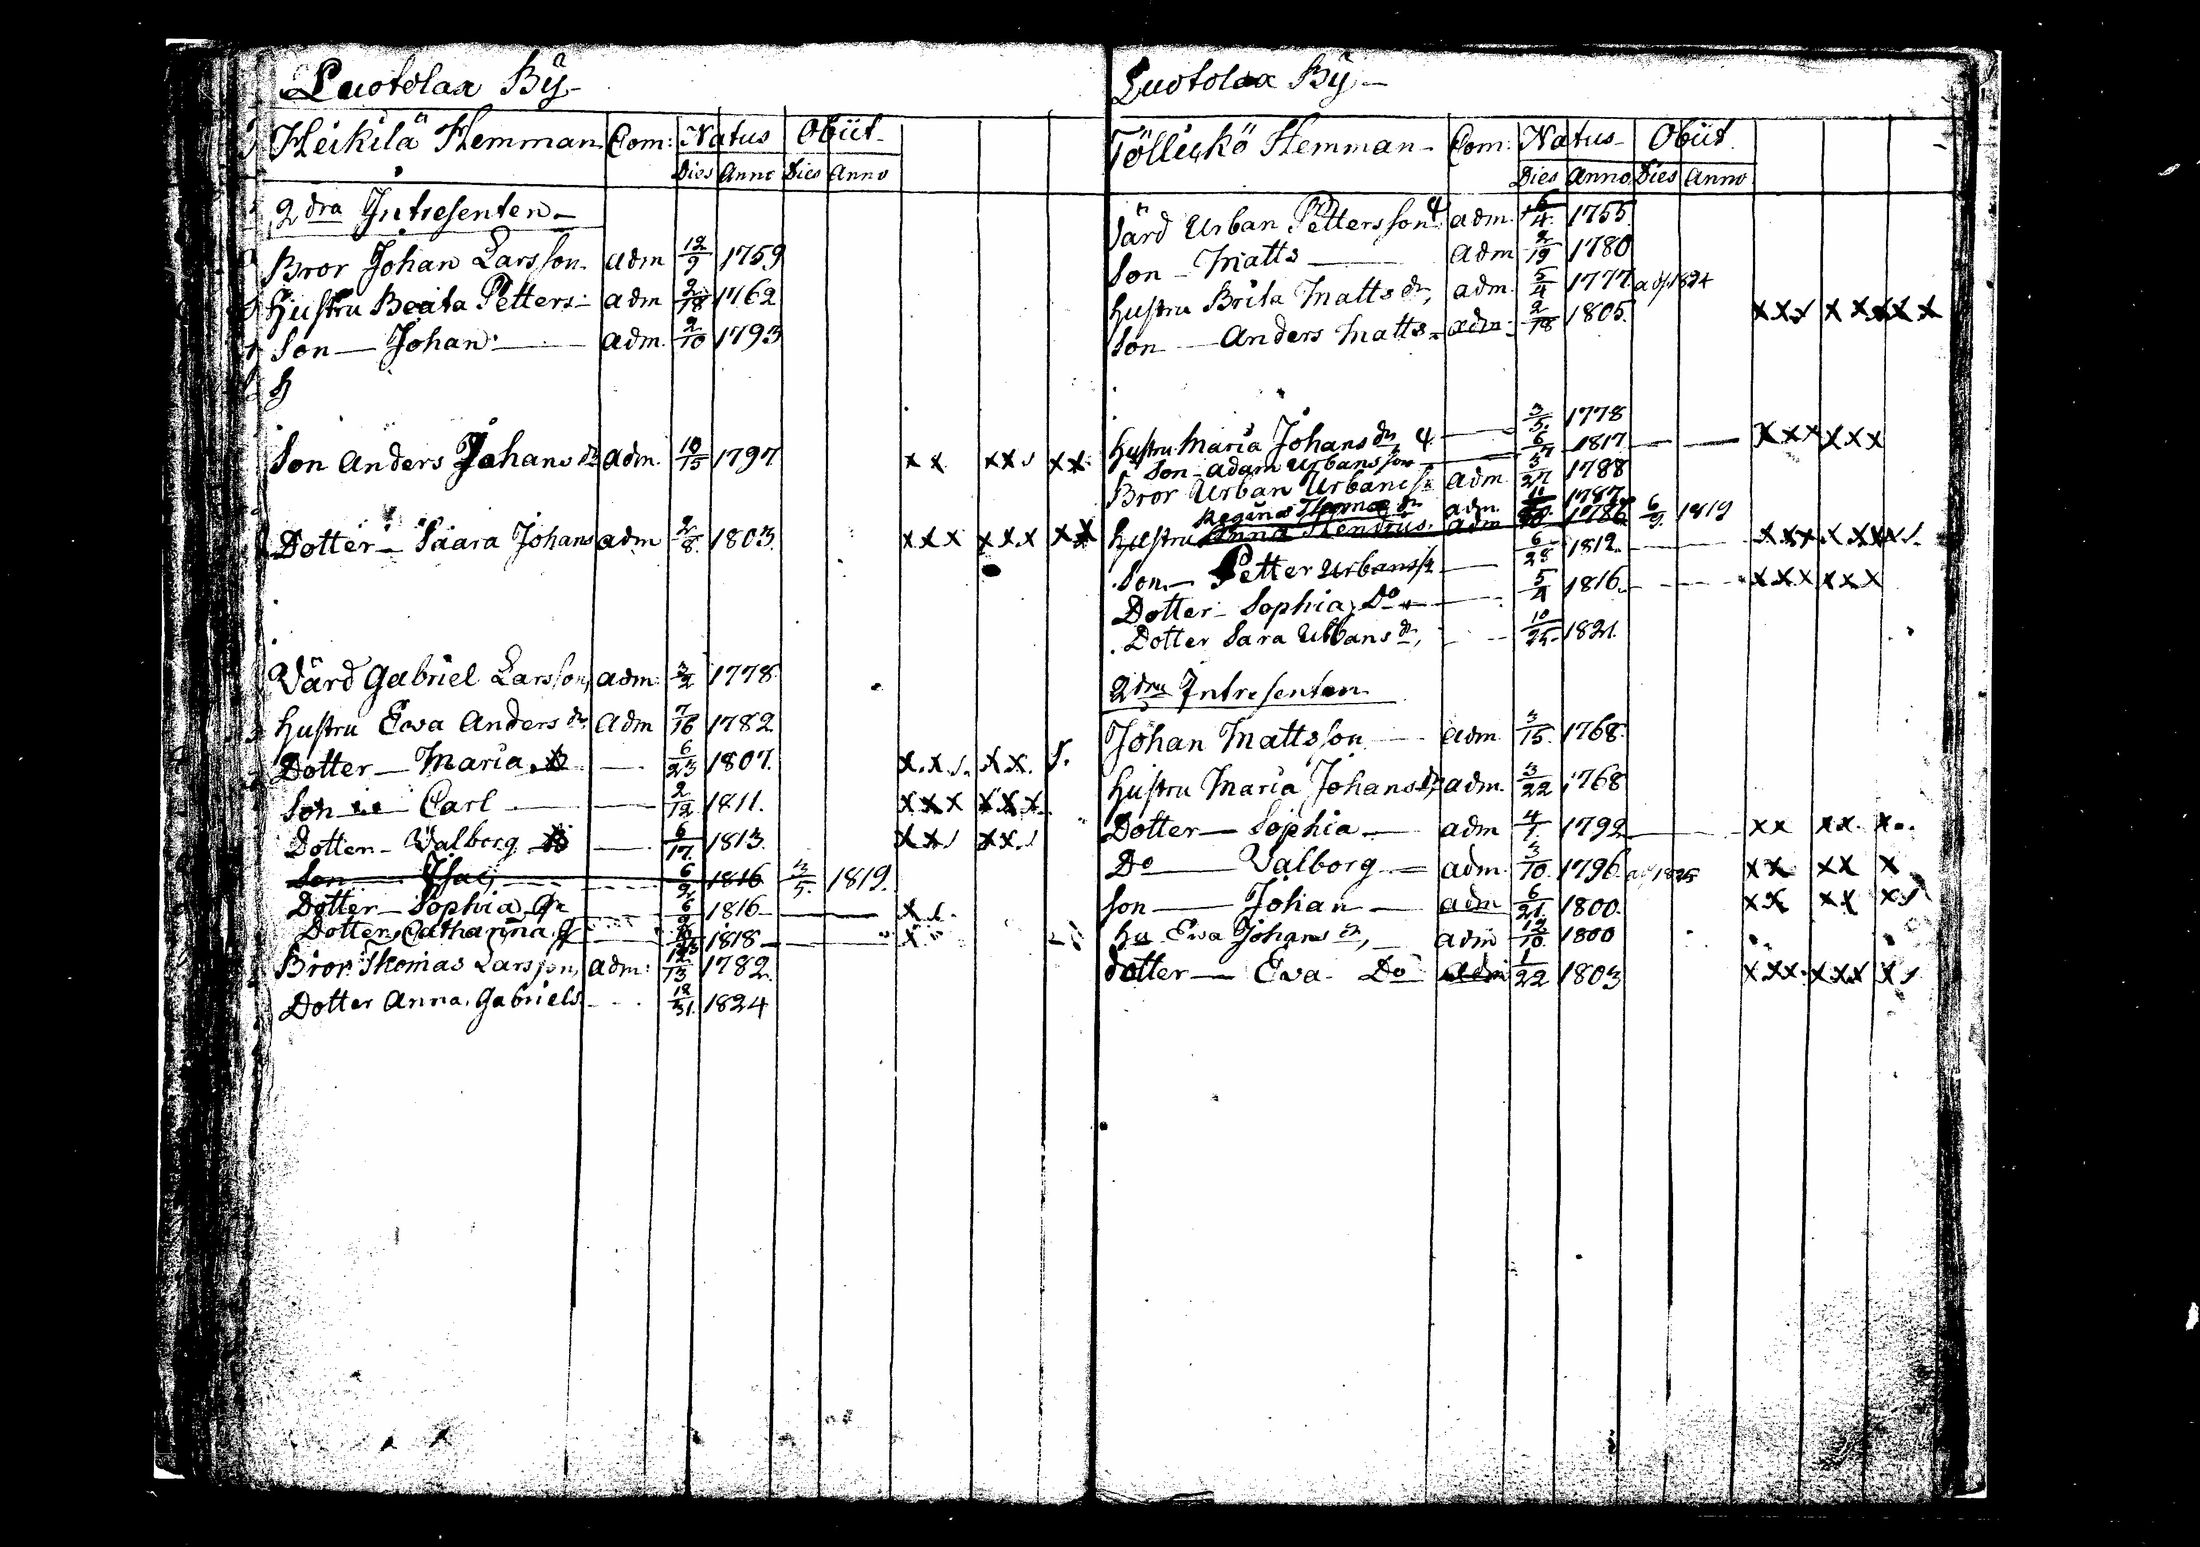 Luotolax By
Heikilä Hemman Com: Natus Obiit
Dies Anno Dies Anno
2dra Intresenten
Bror Johan Larsson adm 12/9 1759
Hustru Beata Petters adm 2/18 1762
Son Johan adm. 2/10 1793
H
Son Anders Johans adm. 10/15 1797 xx xx xx
Dotter Saara Johans adm 1803. xxx xxx xx
Värd Gabriel Larsson adm: 3/2 1778
Hustru Ewa Anders dr adm 7/16 1782
Dotter Maria 6/23 1807. x.x. xx.
Son Carl 2/12 1811. xxx xxx
Dotter Valborg 6/17. 1813. xx xx
Son Isac 6/9 1816 3/5. 1819.
Dotter Sophia 1816 x
Dotter Catharina 1818 x
Bror Thomas Larsson, adm: 1782
Dotter Anna Gabriels 12/31. 1824
Luotolax By
Töllickö Hemman Com: Natus Obiit
Dies Anno Dies Anno
Värd Urban Pettersson 4 adm. 1755
Son Matts adm 2/19 1780
Hustru Brita Matts dr, adm. 5/4 1777 1824
Son Anders Matts adm. 2/18 1805. xx xxxxx
Hustru Maria Johans dr 4 3/5. 1778
Son Adam Urbansson 6 1817 xxx xxx
Bror Urban Urbans adm 3/27 1788
Regina Thomas dr adm. 11 1787
Hustru Anna Hendrics. adm 1786 6/9. 1819
Son Petter Urbans 6/28 1812. xxx x xx
Dotter Sophia Do 5/4 1816. xxx xxx
Dotter Sara Urbans dr, 10/25 1821.
2dra Intresenten
Johan Mattsson adm 3/15. 1768.
Hustru Maria Johans dr adm. 3/22 1768
Dotter Sophia adm 4/7. 1792 xx xx x
Do Valborg adm. 3/10. 1796. 1825 xx xx x
Son Johan adm 6/21. 1800. xx xx x
Hu Ewa Johans dr, adm 12/10. 1800
dotter Ewa Do adm 1/22 1803 xxx. xxx x